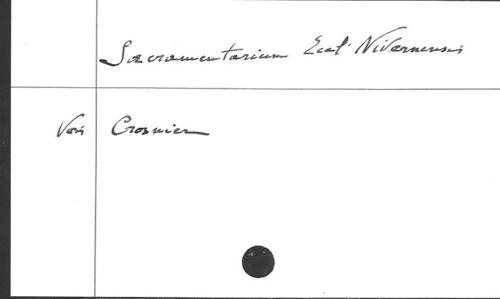 Sacramentarium Eccl. Nivernensis
Voir Crosnier